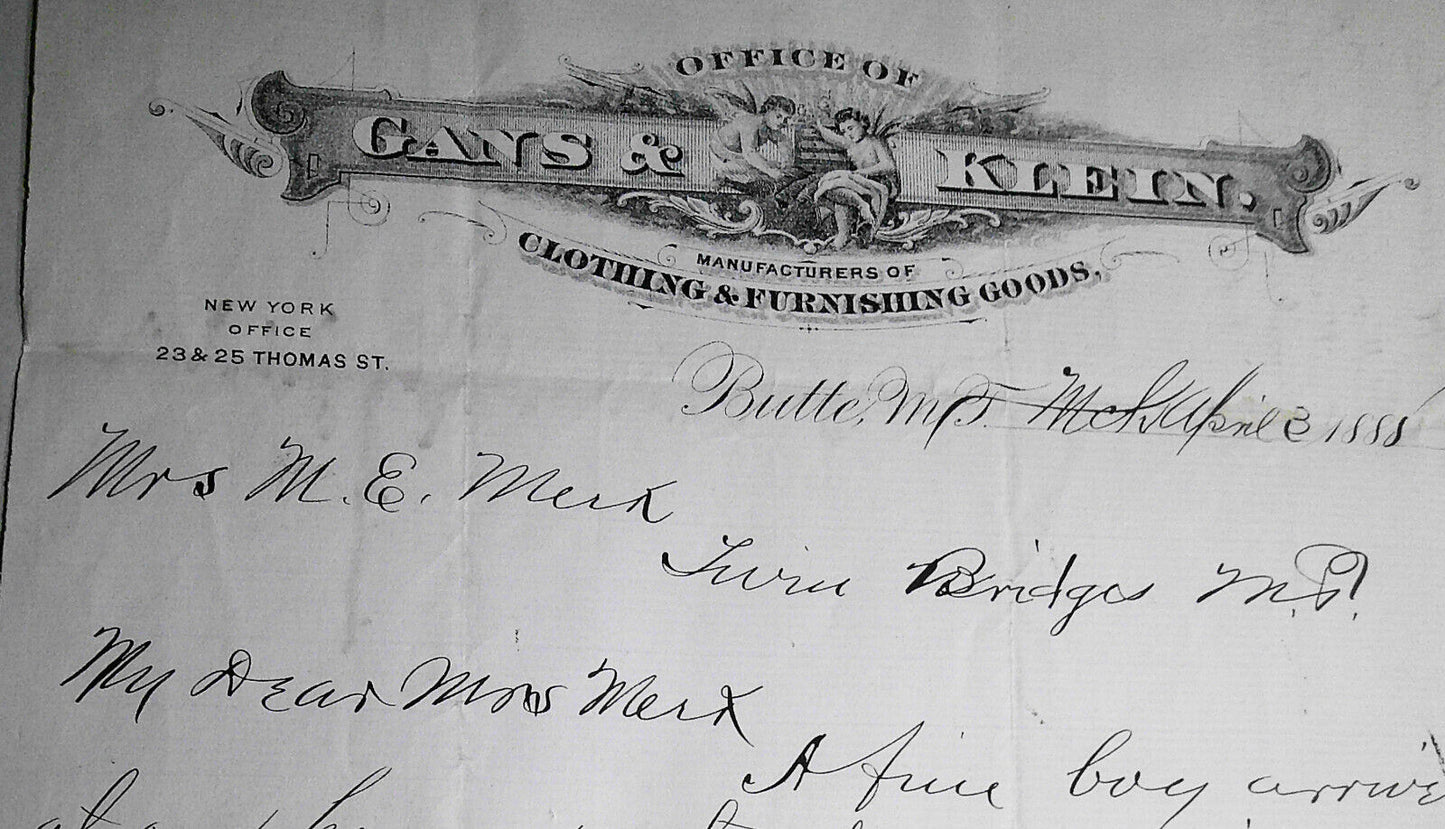 OFFICE OF
GANS & KLEIN.
MANUFACTURERS OF
CLOTHING & FURNISHING GOODS,
NEW YORK
OFFICE
23 & 25 THOMAS ST.
Butte, M.T. Mch April 3 1888
Mrs M. E. Merk
Twin Bridges M.T.
My Dear Mrs Merk
A fine boy arrive
at our